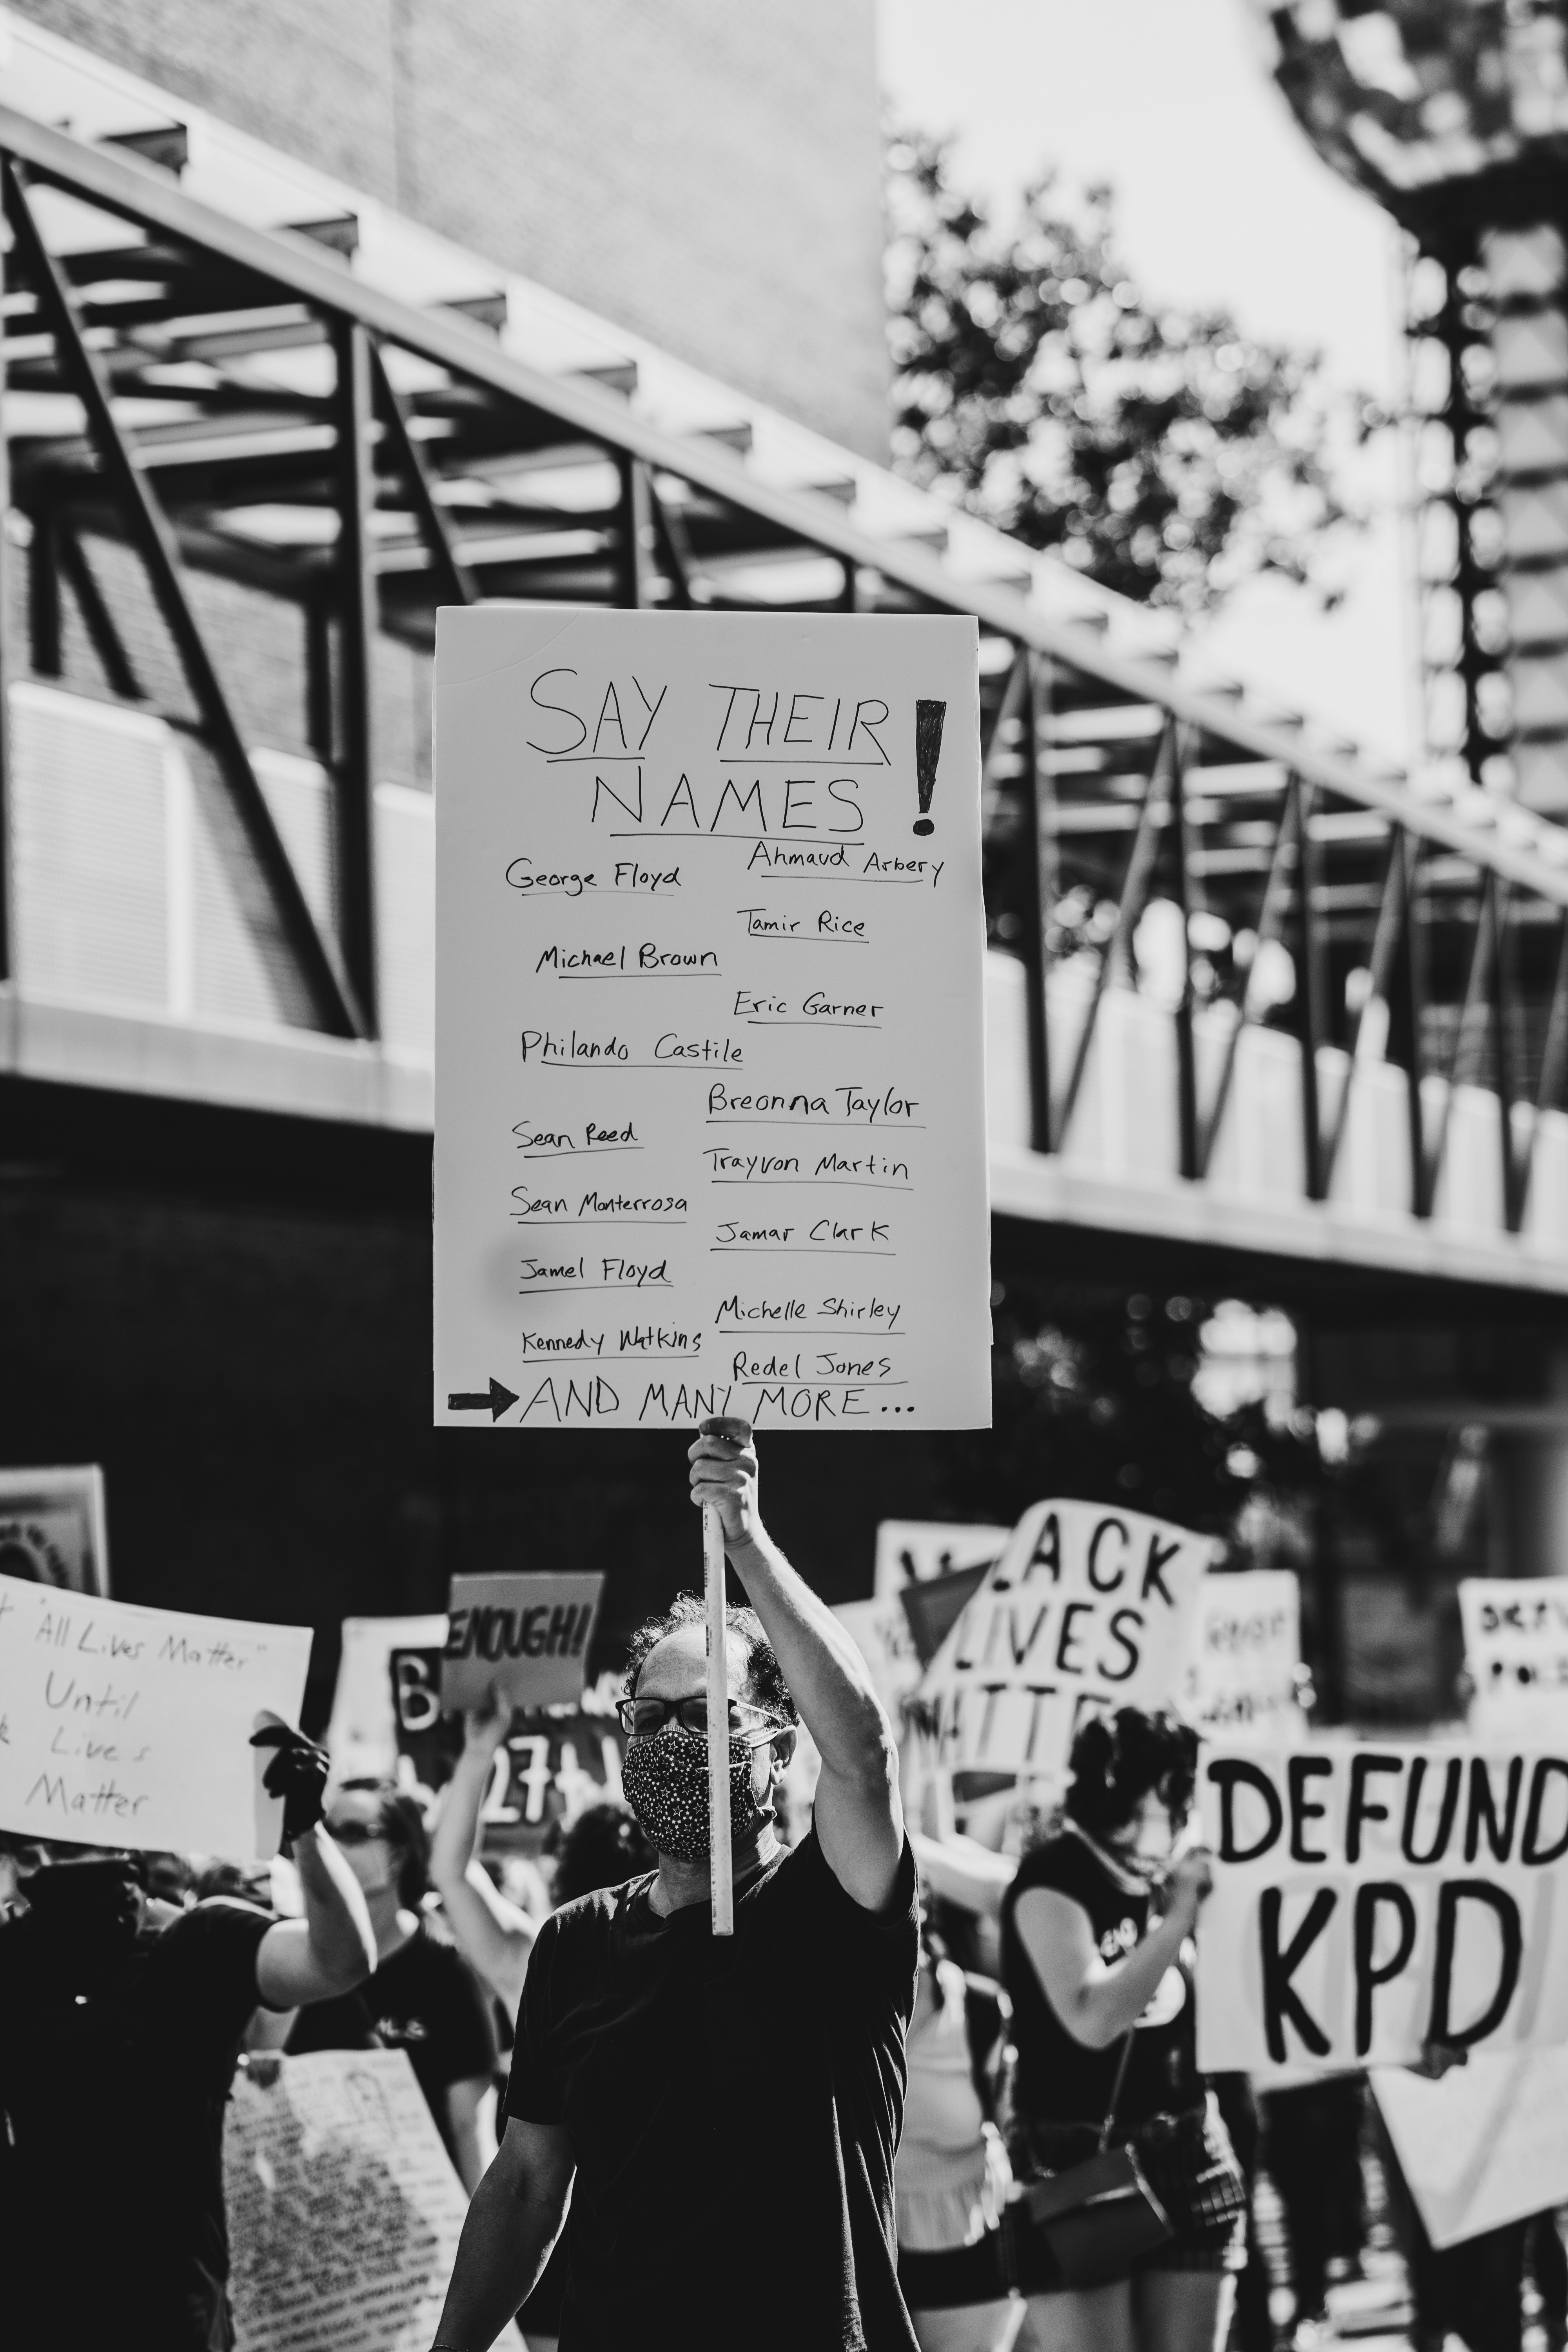 SAY THEIR
NAMES !
Ahmaud Arbery
George Floyd
Tamir Rice
Michael Brown
Eric Garner
Philando Castile
Breonna Taylor
Sean Reed
Trayvon Martin
Sean Monterrosa
Jamar Clark
Jamel Floyd
Michelle Shirley
Kennedy Watkins
Redel Jones
AND MANY MORE...
"All Lives Matter"
Until
Lives
Matter
ENOUGH!
B
ACK
LIVES
MATTE
DEFUND
KPD